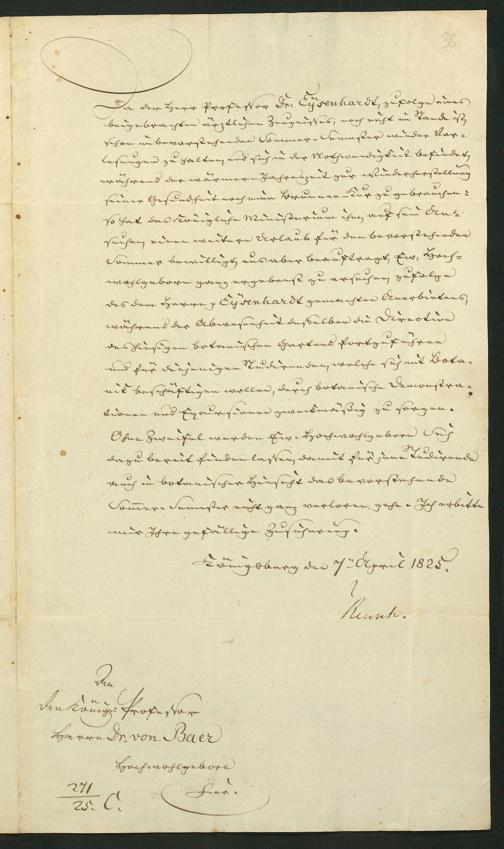 36
Da der Herr Professor Dr. Eysenhardt, zufolge eines
beigebrachten ärztlichen Zeugnisses, noch nicht im Stande ist
schon im bevorstehenden Sommer-Semester wieder Vor-
lesungen zu halten, und sich in der Nothwendigkeit befindet,
während der wärmern Jahreszeit zur Wiederherstellung
seiner Gesundheit noch eine Brunnen-Kur zu gebrauchen:
so hat das Königliche Ministerium ihm auf sein An-
suchen einen weitern Urlaub für den bevorstehenden
Sommer bewilligt, uns aber beauftragt, Ew. Hoch-
wohlgeboren ganz ergebenst zu ersuchen, zufolge
des dem Herrn Eysenhardt gemachten Anerbietens,
während der Abwesenheit desselben die Direction
des hiesigen botanischen Gartens fortzuführen
und für diejenigen Studirenden, welche sich mit Bota-
nik beschäftigen wollen, durch botanische Demonstra-
tionen und Excursionen zweckmäßig zu sorgen.
Ohne Zweifel werden Ew. Hochwohlgeboren Sich
dazu bereit finden lassen, damit für jene Studirende
auch in botanischer Hinsicht das bevorstehende
Sommer-Semester nicht ganz verloren gehe. Ich erbitte
mir Ihre gefällige Zusicherung.
Königsberg den 7ten April 1825.
An
den Königl. Professor
Herrn Dr. von Baer
Hochwohlgeboren
hier.
271
25. C.